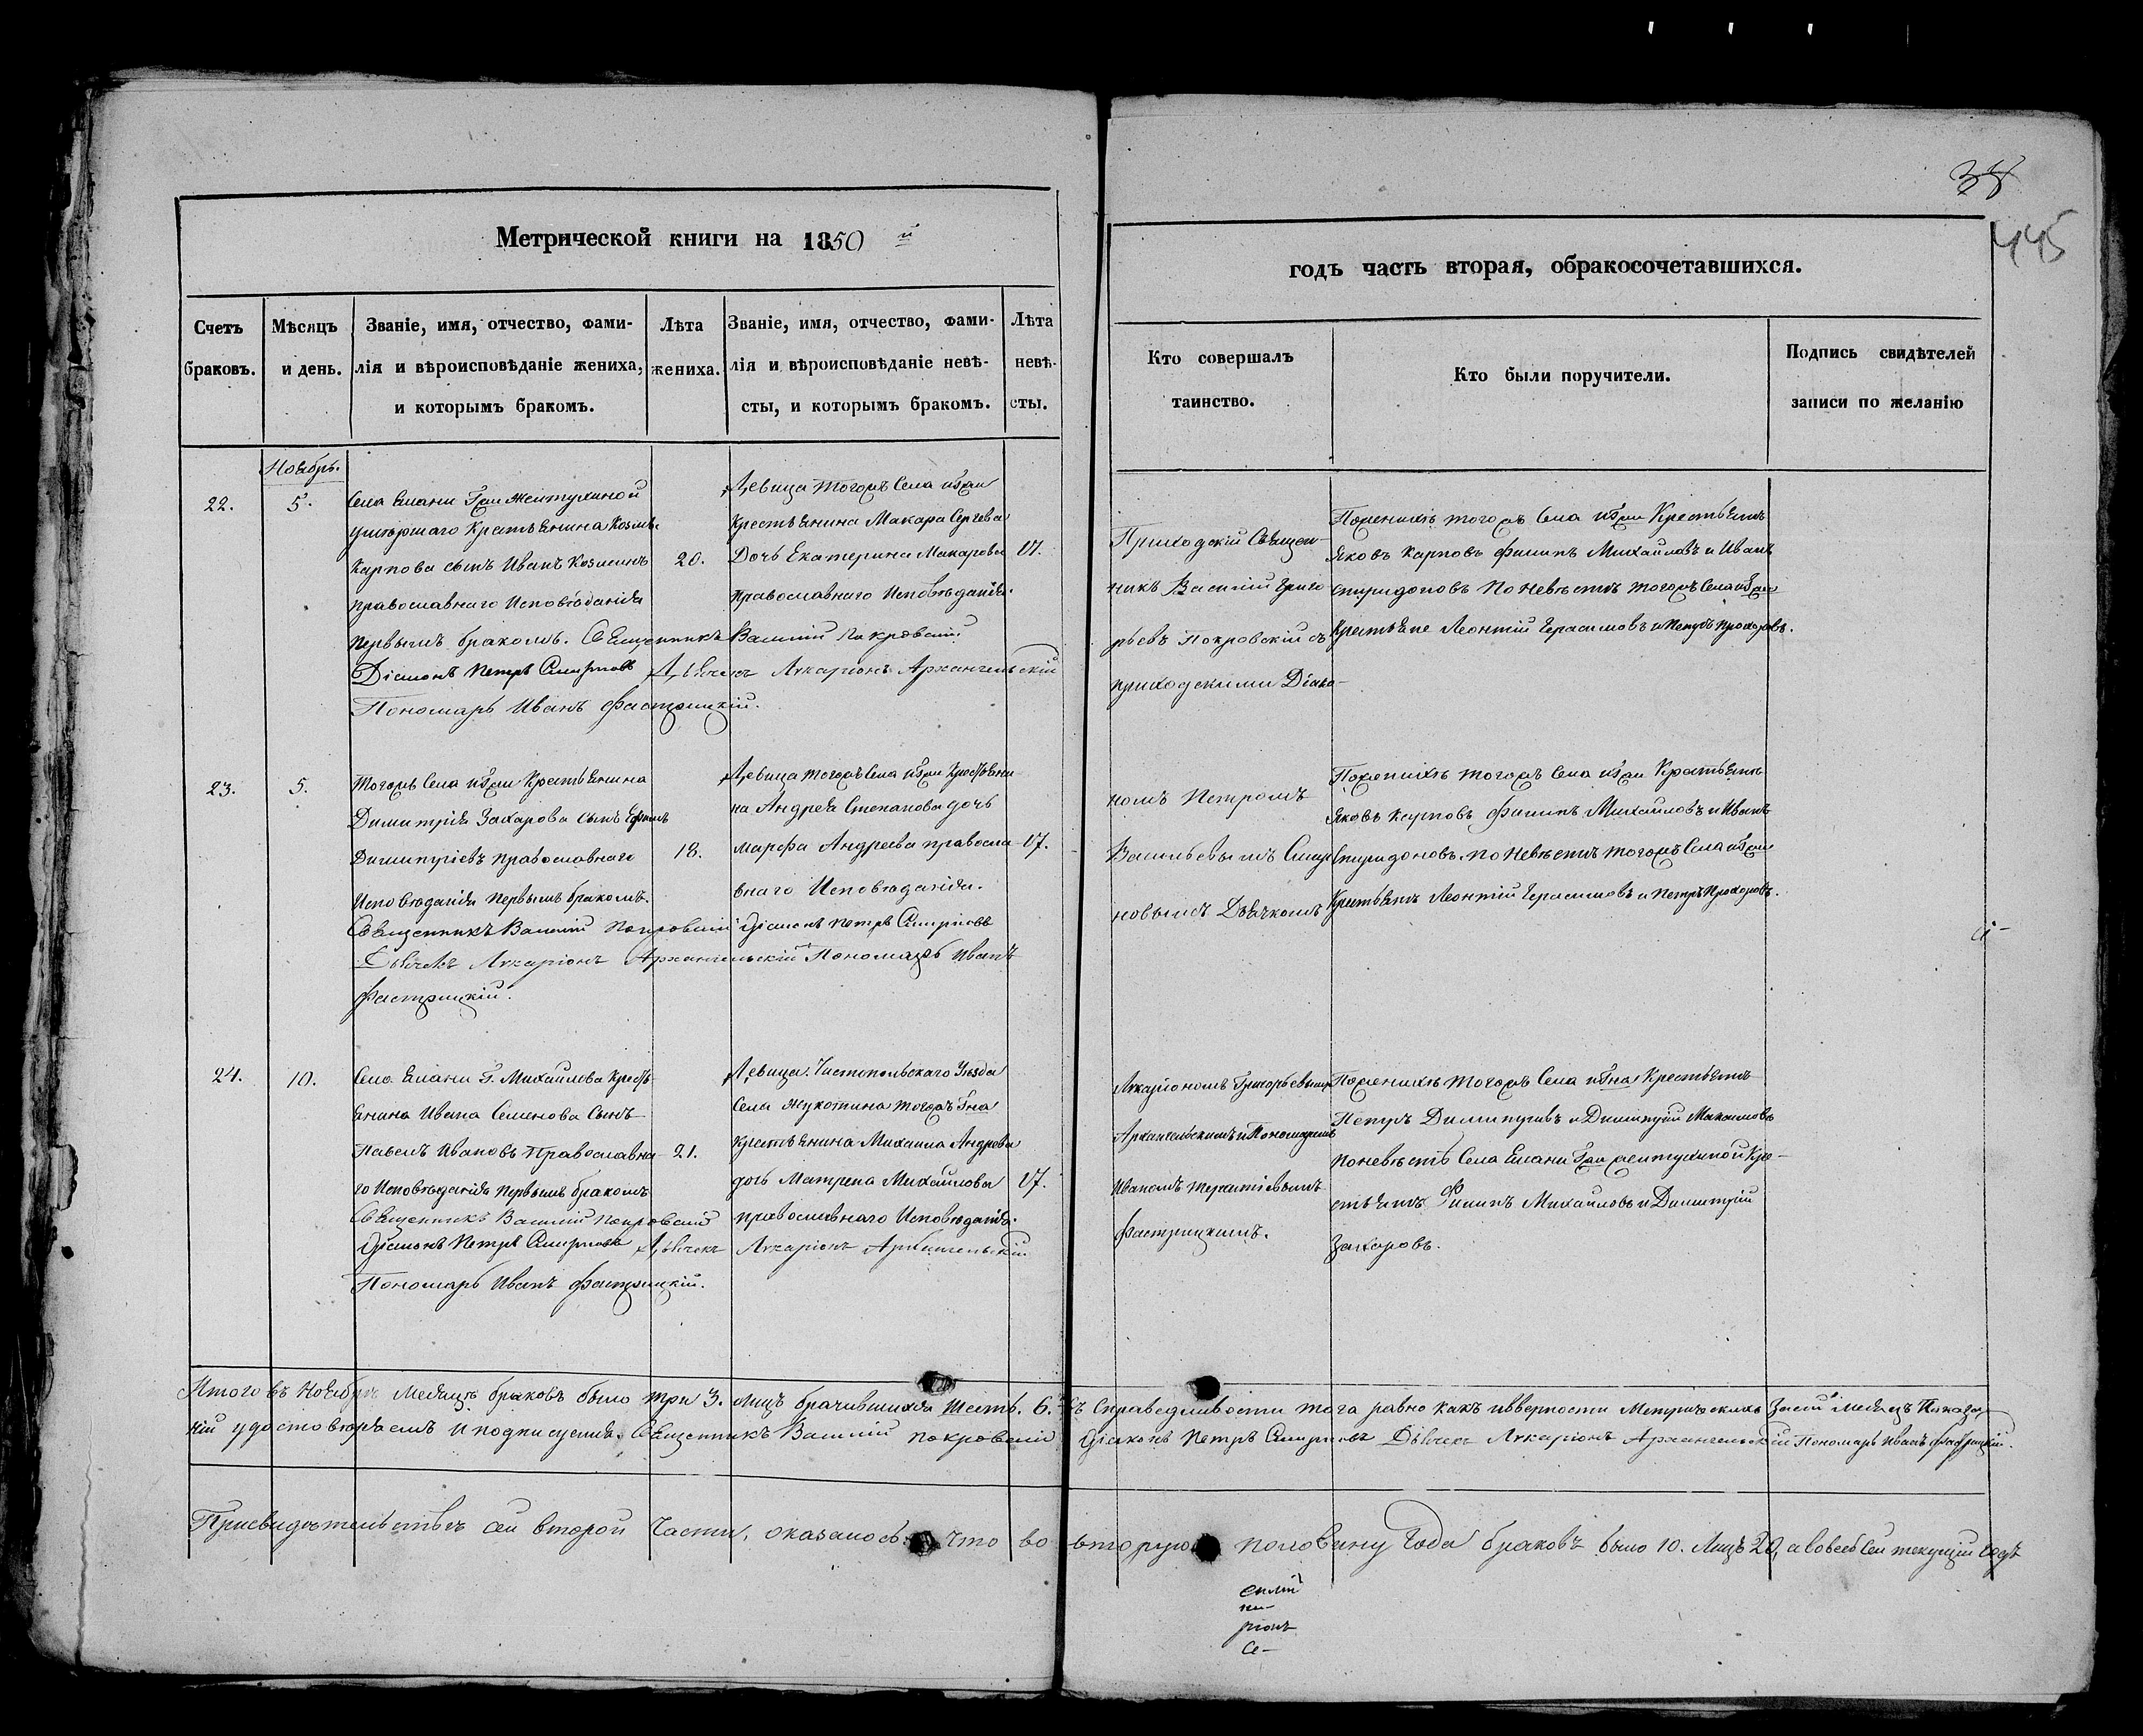 38
445
Метрической книги на 1850 й
годъ часть вторая, обракосочетавшихся.
Счетъ браковъ.
Мѣсяцъ и день.
Званіе, имя, отчество, фами-
лія и вѣроисповѣданіе жениха,
и которымъ бракомъ.
Лѣта жениха.
Званіе, имя, отчество, фами-
лія и вѣроисповѣданіе невѣ-
сты, и которымъ бракомъ.
Лѣта невѣ-
сты.
Кто совершалъ
таинство.
Кто были поручители.
Подпись свидѣтелей
записи по желанію
Ноябрь.
22.
5.
Села Елани Гжи Желтухиной
умершаго Крестьянина Козмы
Карпова сынъ Иванъ Козминъ
православнаго Исповѣданія
первымъ бракомъ. Священникъ Василій Покровскій
Діаконъ Петръ Смирновъ Дьячекъ Иларіонъ Архангельскій
Пономарь Иванъ
20.
Девица тогожъ Села и Гжи
Крестьянина Макара Сергеева
Дочь Екатерина Макарова
православнаго Исповѣданія.
17.
Приходскій Священ-
никъ Василій Григо
рьевъ Покровскій съ
приходскими Діако-
Поженихѣ тогожъ Села и Гжи Крестьяне
Яковъ Карповъ Филипъ Михайловъ и Иванъ
Спиридоновъ по Невѣстѣ тогожъ Села и Гжи
Крестьяне Леонтій Герасимовъ и Петръ Прохоровъ.
23.
5.
Тогожъ Села и Гжи Крестьянина
Димитрія Захарова сынъ Ефимъ
Димитріевъ православнаго
Исповѣданія первымъ бракомъ.
Священникъ Василій Покровскій Діаконъ Петръ Смирновъ
Дьячекъ Иларіонъ Архангельскій Пономарь Иванъ
18.
Девица тогожъ Села и Гжи Крестьяни
на Андрея Степанова дочь
Марфа Андреева правосла-
внаго Исповѣданія.
17.
номъ Петромъ
Васильевымъ Смир
новымъ Дьячкомъ
Поженихѣ тогожъ Села и Гжи Крестьяне
Яковъ Карповъ Филипъ Михайловъ и Иванъ
Спиридоновъ. по Невѣстѣ тогожъ Села и Гжи
Крестьяне Леонтій Герасимовъ и Петръ Прохоровъ.
24.
10.
Села Елани Г. Михайлова Кресть
янина Ивана Семенова Сынъ
Павелъ Ивановъ Православна-
го Исповѣданія первымъ бракомъ
Священникъ Василій Покровскій
Діаконъ Петръ Смирновъ Дьячекъ Иларіонъ Архангельскій
Пономарь Иванъ
21.
Девица. Чистопольскаго Уезда
Села Жукотина тогожъ Гна
крестьянина Михаила Андреева
дочь Матрена Михайлова
православнаго Исповѣданія.
17.
Иларіономъ Григорьевымъ
Архангельскимъ и Пономаремъ
Иваномъ
Поженихѣ тогожъ Села и Гна Крестьяне
Петръ Димитріевъ и Димитрій Максимовъ
поневѣстѣ Села Елани Гжи Желтухиной Кре-
стьяне Филипъ Михайловъ и Димитрій
Захаровъ.
Итого въ Ноябрѣ месяцѣ браковъ было три 3. лицъ брачившихся Шесть. 6. Въ справедливости того равно какъ и вверности Метрическихъ Засей месяцъ Показа-
ній удостовѣряемъ и подписуемся. Священникъ Василій Покровскій Діаконъ Петръ Смирновъ Дьячекъ Иларіонъ Архангельскій Пономарь Иванъ
Присвидѣтельствѣ сей второй части, оказалось: что во вторую половину Года браковъ было 10. Лицъ 20, а вовсей Сей текущій годъ